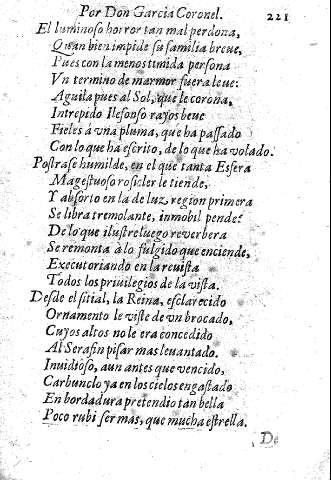 Por Don Garcia Coronel. 221
El luminoso horror tan mal perdona,
Quan bien impide su familia breue,
Pues con la menos timida persona
Vn termino de marmor fuera leue:
Aguila pues al Sol, que le corona,
Intrepido Ilefonso rayos beue
Fieles a vna pluma, que ha passado
Con lo que ha escrito, de lo que ha volado.
Postrase humilde, en el que tanta Esfera
Magestuoso rosicler le tiende,
Y absorto en la de luz, region primera
Se libra tremolante, inmobil pende:
De lo que ilustre luego reverbera
Se remonta à lo fulgido que enciende,
Executoriando en la reuista
Todos los priuilegios de la vista.
Desde el sitial, la Reina, esclarecido
Ornamento le viste de vn brocado,
Cuyos altos no le era concedido
Al Serafin pisar mas leuantado.
Inuidioso, aun antes que vencido,
Carbunclo ya en los cielos engastado
En bordadura pretendio tan bella
Poco rubi ser mas, que mucha estrella.
De